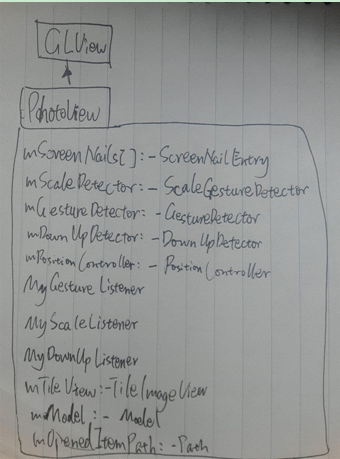 GLView
PhotoView
mScreenNails[]:-ScreenNailEntry
mScaleDetector:-ScaleGestureDetector
mGestureDetector:-GestureDetector
mDownUpDetector:-DownUpDetector
mPositionController:-PositionController
MyGestureListener
MyScaleListener
MyDownUpListener
mTileView:-TileImageView
mModel:-Model
mOpenedItemPath:-Path